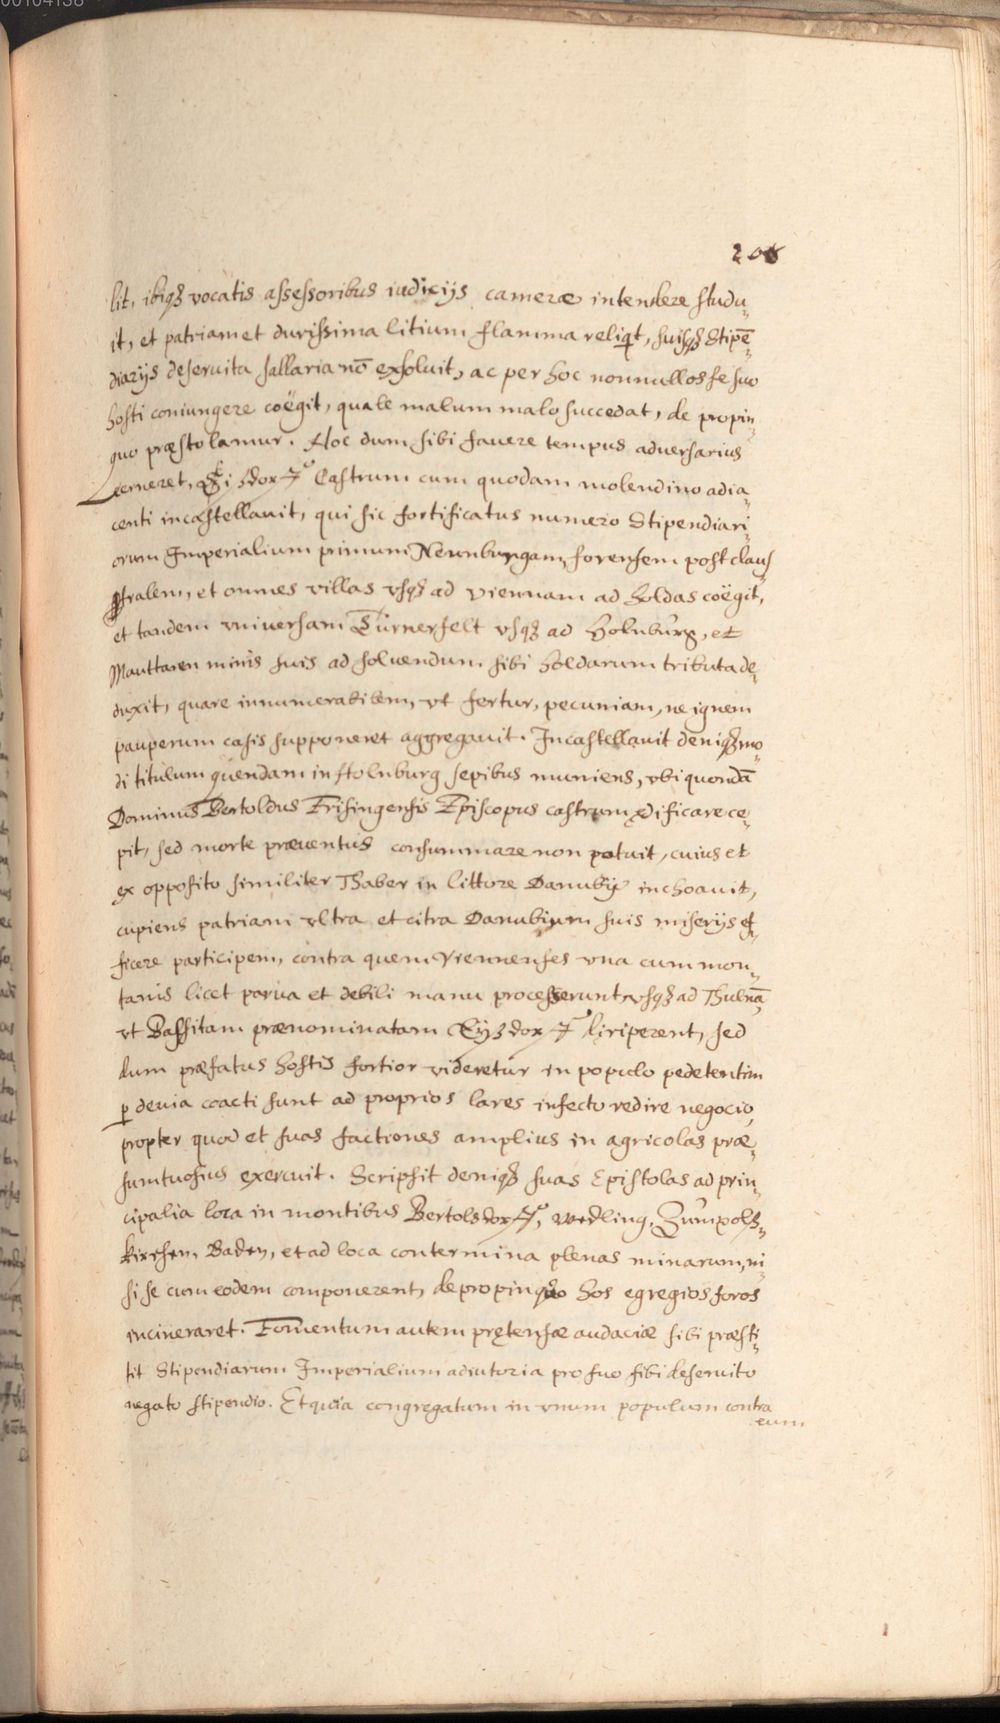 208
lit, ibiqꝫ vocatis assessoribus iudicijs camerae intendere studu„
it, et patriam et durissima litium flamma reliqt, suisqꝫ Stipē„
diarijs deseruita sallaria nō exsoluit, ac per hoc nonnullos se suo
hosti coniungere coëgit, quale malum malo succedat, de propin„
quo praestolamur. Hoc dum sibi fauere tempus aduersarius
cerneret, Castrum cum quodam molendino adia„
centi incastellauit, qui sic fortificatus numero Stipendiari„
orum Imperialium primum Neunburgam forensem post claus„
tralem, et omnes villas vsqꝫ ad viennam ad holdas coëgit,
et tandem vniuersam Türnerfelt vsqꝫ ad Holnburg, et
Mauttaren minis suis ad soluendum sibi holdarum tributa de„
duxit, quare innumerabilem, vt fertur, pecuniam, ne ignem
pauperum casis supponeret aggregauit. Incastellauit deniqꝫ mo„
di titulum quendam in stolnburg sepibus muniens, vbi quondā
Dominus Bertoldus Frisingensis Episcopus castrum ędificare ce„
pit, sed morte praeuentus consummare non potuit, cuius et
ex opposito similiter Thaber in littore Danubij inchoauit,
cupiens patriam vltra et citra Danubium suis miserijs ef„
ficere participem, contra quem Viennenses vna cum mon„
tanis licet parua et debili manu processerunt vsqꝫ ad Thulnā,
vt Bassitam praenominatam diriperent, sed
dum praefatus hostis fortior videretur in populo pedetentim
p deuia coacti sunt ad proprios lares infecto redire negocio,
propter quod et suas factiones amplius in agricolas prae„
sumtuosius exercuit. Scripsit deniqꝫ suas Epistolas ad prin„
cipalia loca in montibus Medling, Gumpolß„
kirchen, Baden, et ad loca contermina plenas minarum, ni„
si se cum eodem componerent, de propinquo hos egregios foros
incineraret. Fomentum autem pręttensae audaciae sibi praesti„
tit Stipendiarum Imperialium adiutoria pro suo sibi deseruito
negato stipendio. Et quia congregatum in vnum populum contra
eum